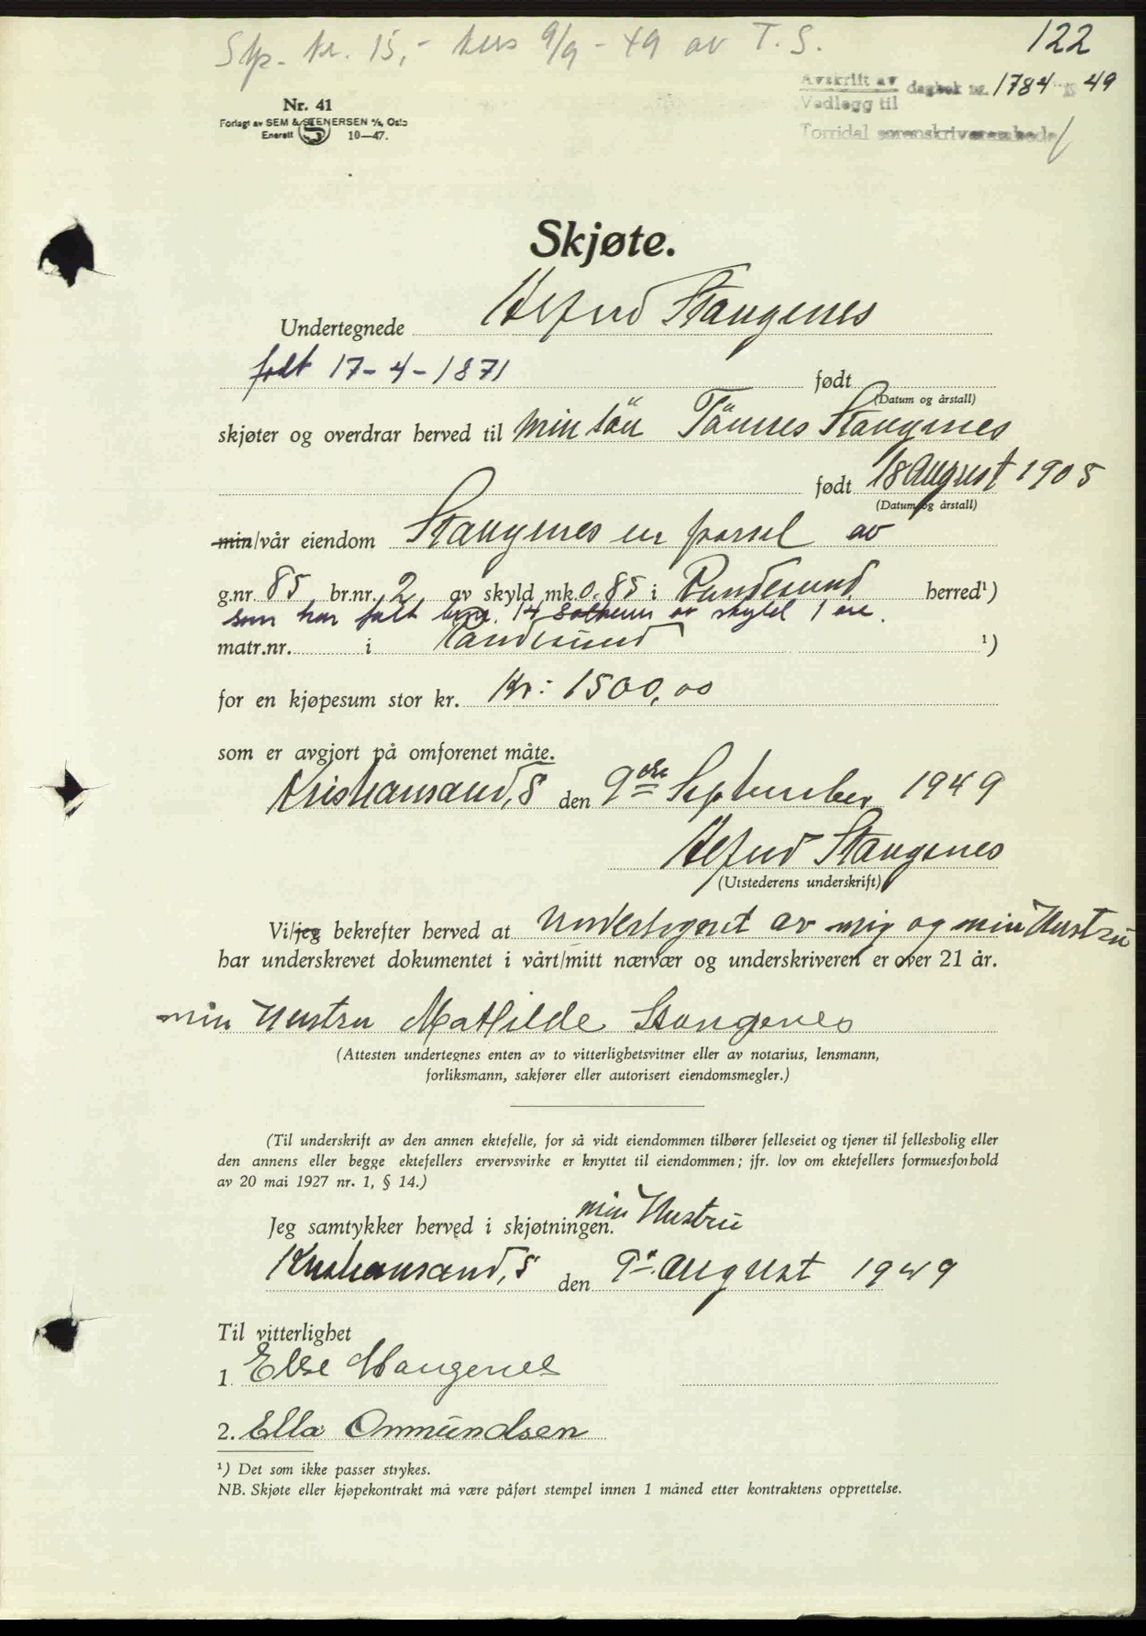 Stp. kr. 15,- kass 9/9 - 49 av T. S.
122
Avskrift av
Vedlegg til
dagbok nr. 1784 49
Torridal sorenskriverembede
Nr. 41
Forlagt av SEM & STENERSEN A/S, Oslo
Enerett S 10—47.
Skjøte.
Undertegnede Alfred Stangenes
født 17-4-1871 født
(Datum og årstall)
skjøter og overdrar herved til min sön Tönnes Stangenes
født 18 August 1905
(Datum og årstall)
min/vår eiendom Stangenes en parsel av
g.nr. 85 br.nr. 2 av skyld mk. 0.85 i Randesund herred¹)
som har fått brnr. 14 av skyld 1 øre.
matr.nr. i Randesund ¹)
for en kjøpesum stor kr. Kr: 1500,00
som er avgjort på omforenet måte.
Kristiansand, S den 9de September 1949
Alfred Stangenes
(Utstederens underskrift)
Vi/jeg bekrefter herved at undertegnet av mig og min Hustru
har underskrevet dokumentet i vårt/mitt nærvær og underskriveren er over 21 år.
min Hustru Mathilde Stangenes
(Attesten undertegnes enten av to vitterlighetsvitner eller av notarius, lensmann,
forliksmann, sakfører eller autorisert eiendomsmegler.)
(Til underskrift av den annen ektefelle, for så vidt eiendommen tilhører felleseiet og tjener til fellesbolig eller
den annens eller begge ektefellers ervervsvirke er knyttet til eiendommen; jfr. lov om ektefellers formuesforhold
av 20 mai 1927 nr. 1, § 14.)
Jeg samtykker herved i skjøtningen. min Hustru
Kristiansand, S den 9de August 1949
Til vitterlighet
1. Else Stangenes
2. Ella Ommundsen
¹) Det som ikke passer strykes.
NB. Skjøte eller kjøpekontrakt må være påført stempel innen 1 måned etter kontraktens opprettelse.